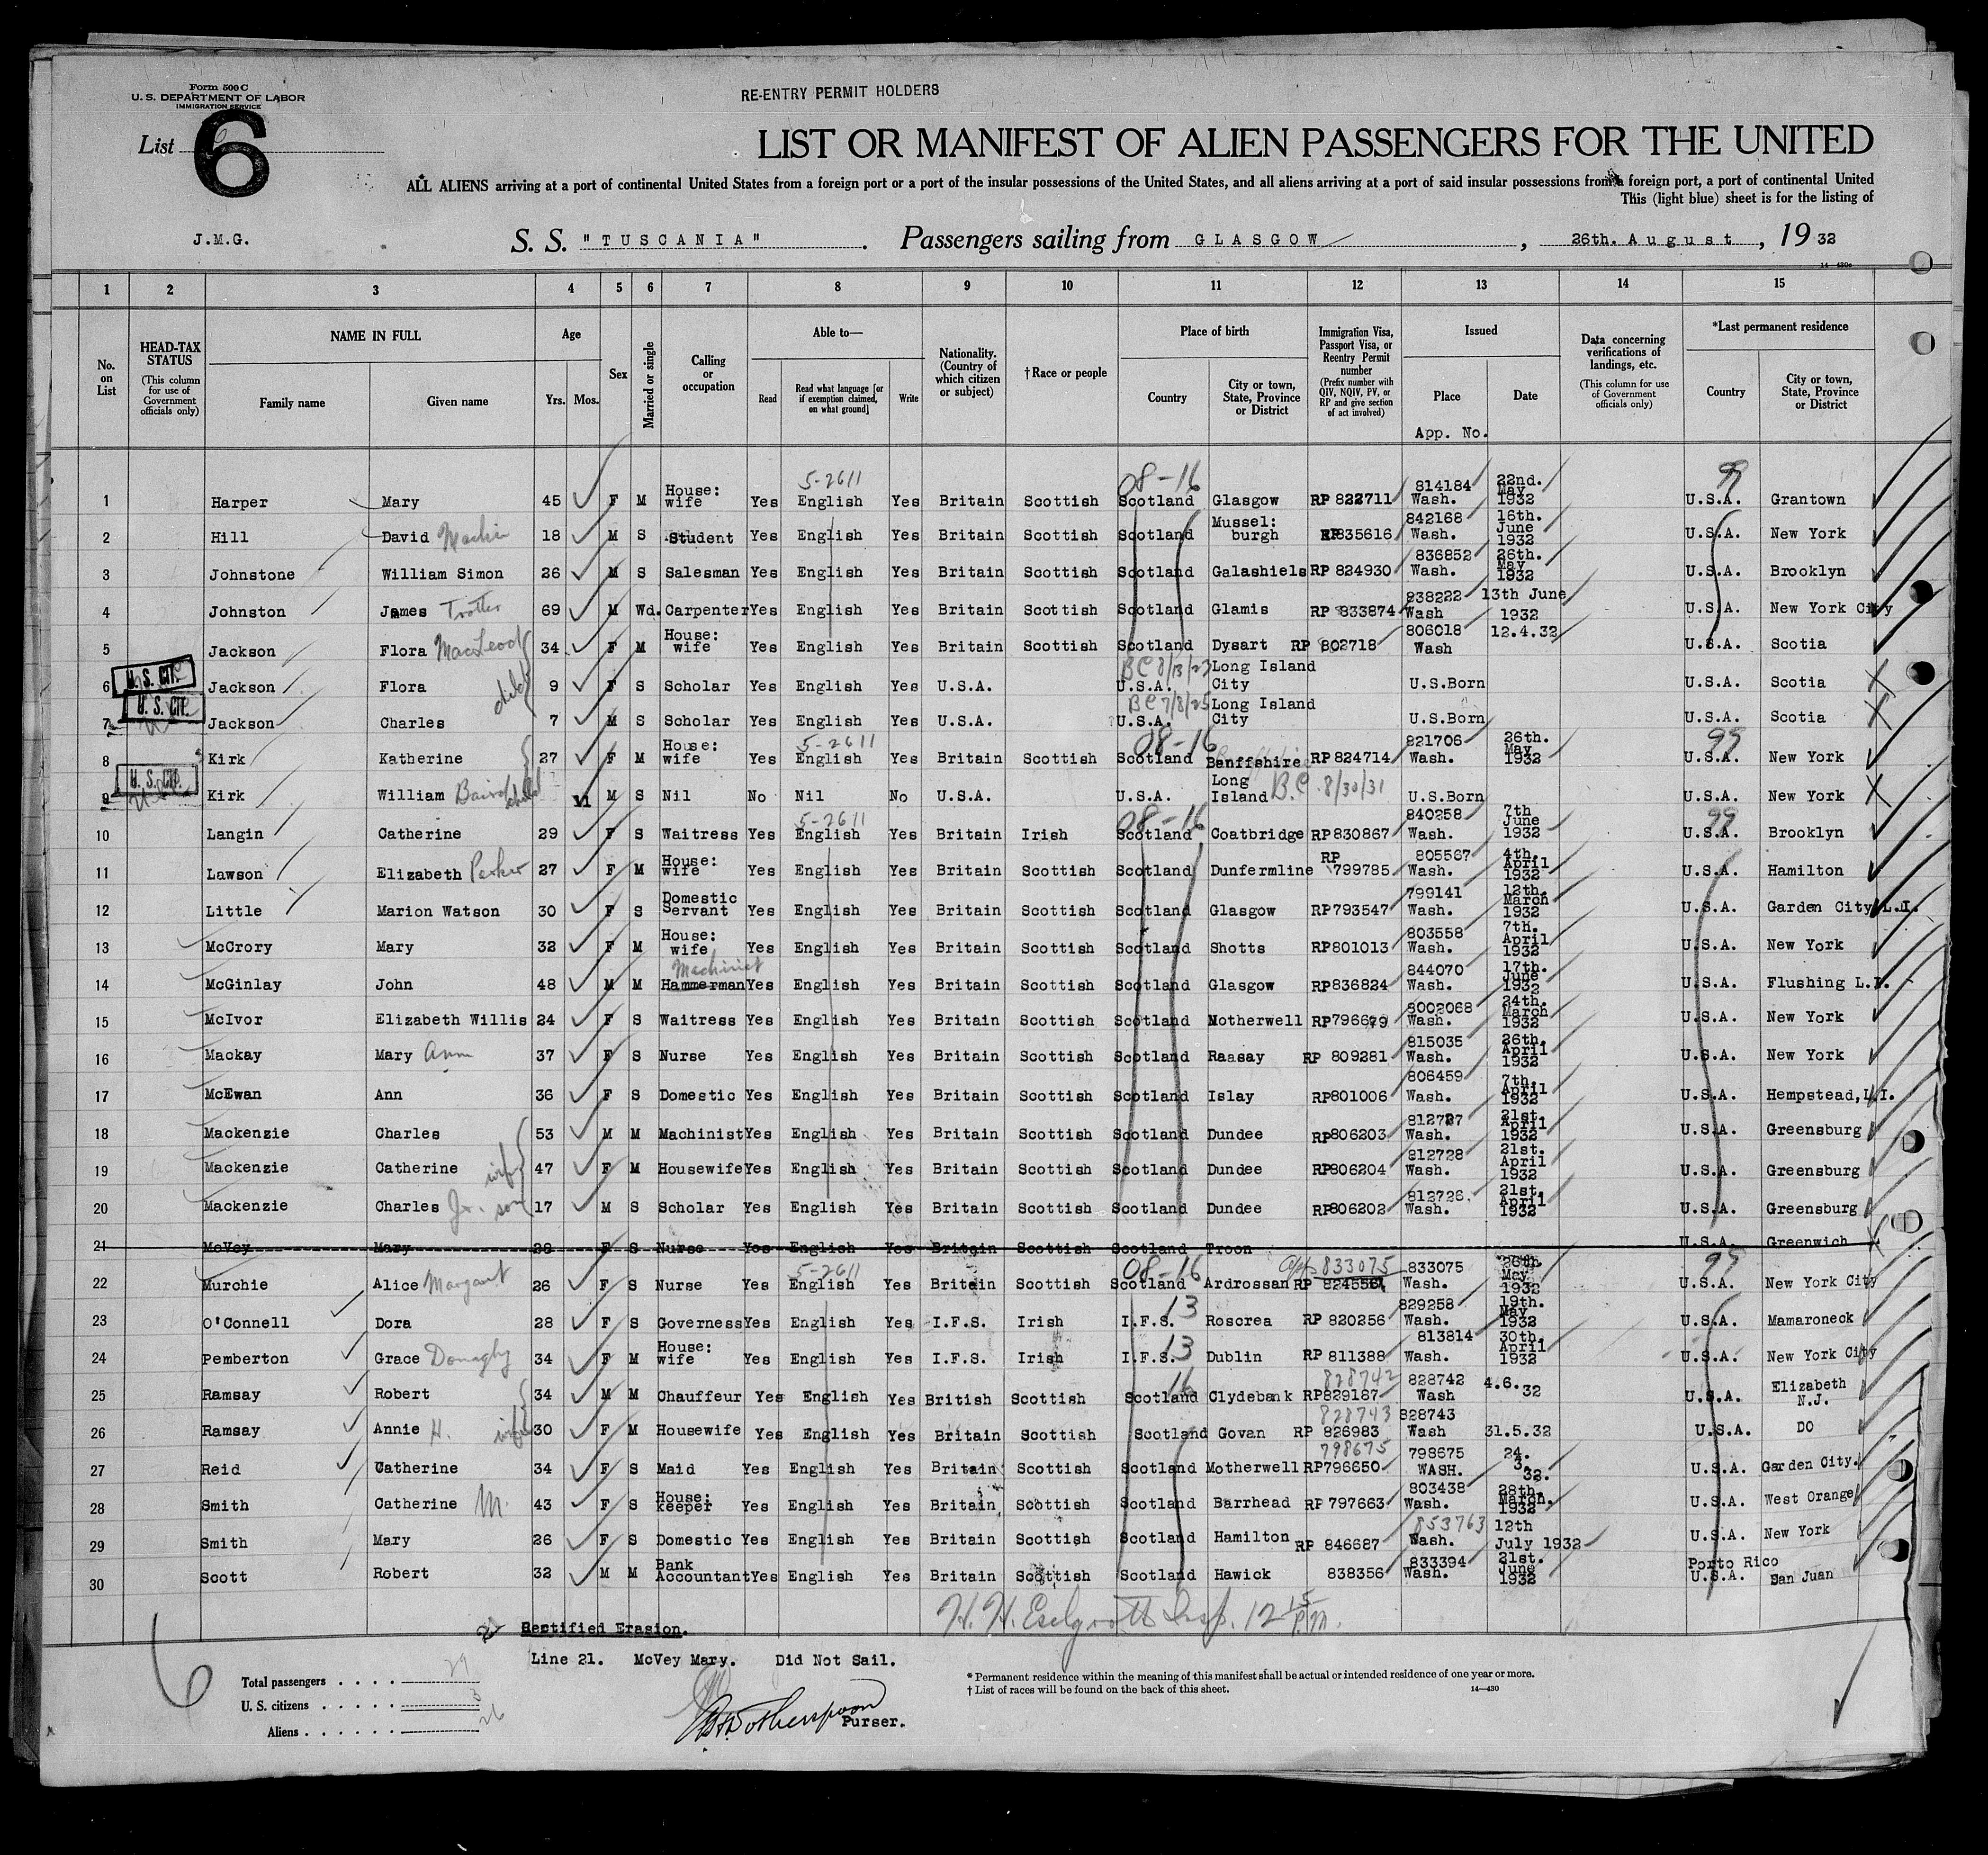 Form 500 C
U. S. DEPARTMENT OF LABOR
IMMIGRATION SERVICE
RE-ENTRY PERMIT HOLDERS
List 6
LIST OR MANIFEST OF ALIEN PASSENGERS FOR THE UNITED
ALL ALIENS arriving at a port of continental United States from a foreign port or a port of the insular possessions of the United States, and all aliens arriving at a port of said insular possessions from a foreign port, a port of continental United
This (light blue) sheet is for the listing of
J.M.G.
S. S. "TUSCANIA". Passengers sailing from GLASGOW, 26th. August, 19 32
14—430c
1 2 3 4 5 6 7 8 9 10 11 12 13 14 15
No. on List
HEAD-TAX STATUS (This column for use of Government officials only)
NAME IN FULL
Family name Given name
Age
Yrs. Mos.
Sex
Married or single
Calling or occupation
Able to—
Read Read what language [or if exemption claimed, on what ground] Write
Nationality. (Country of which citizen or subject)
†Race or people
Place of birth
Country City or town, State, Province or District
Immigration Visa, Passport Visa, or Reentry Permit number (Prefix number with QIV, NQIV, PV, or RP and give section of act involved)
Issued
Place Date
App. No.
Data concerning verifications of landings, etc. (This column for use of Government officials only)
*Last permanent residence
Country City or town, State, Province or District
5-2611 08-16 99
1 Harper Mary 45 F M House: wife Yes English Yes Britain Scottish Scotland Glasgow RP 822711 814184 Wash. 22nd. May 1932 U.S.A. Grantown
2 Hill David 18 M S Student Yes English Yes Britain Scottish Scotland Mussel: burgh RP835616 842168 Wash. 16th. June 1932 U.S.A. New York
3 Johnstone William Simon 26 M S Salesman Yes English Yes Britain Scottish Scotland Galashiels RP 824930 836852 Wash. 26th. May 1932 U.S.A. Brooklyn
4 Johnston James Trotter 69 M Wd. Carpenter Yes English Yes Britain Scottish Scotland Glamis RP 833874 838222 Wash 13th June 1932 U.S.A. New York City
5 Jackson Flora MacLeod 34 F M House: wife Yes English Yes Britain Scottish Scotland Dysart RP 802718 806018 Wash 12.4.32 U.S.A. Scotia
U. S. CIT.
6 Jackson Flora child 9 F S Scholar Yes English Yes U.S.A. BC 8/13/23 U.S.A. Long Island City U.S.Born U.S.A. Scotia
U. S. CIT.
7 Jackson Charles 7 M S Scholar Yes English Yes U.S.A. BC 7/8/25 U.S.A. Long Island City U.S.Born U.S.A. Scotia
5-2611 08-16 99
8 Kirk Katherine 27 F M House: wife Yes English Yes Britain Scottish Scotland Banffshire RP 824714 821706 Wash. 26th. May 1932 U.S.A. New York
U. S. CIT.
9 Kirk William Baird child 11 M S Nil No Nil No U.S.A. U.S.A. Long Island B.C. 8/30/31 U.S.Born U.S.A. New York
5-2611 08-16 99
10 Langin Catherine 29 F S Waitress Yes English Yes Britain Irish Scotland Coatbridge RP830867 840258 Wash. 7th June 1932 U.S.A. Brooklyn
11 Lawson Elizabeth Parker 27 F M House: wife Yes English Yes Britain Scottish Scotland Dunfermline RP 799785 805567 Wash. 4th. April 1932 U.S.A. Hamilton
12 Little Marion Watson 30 F S Domestic Servant Yes English Yes Britain Scottish Scotland Glasgow RP793547 799141 Wash. 12th. March 1932 U.S.A. Garden City L.I.
13 McCrory Mary 32 F M House: wife Yes English Yes Britain Scottish Scotland Shotts RP801013 803558 Wash. 7th. April 1932 U.S.A. New York
Machinist
14 McGinlay John 48 M M Hammerman Yes English Yes Britain Scottish Scotland Glasgow RP836824 844070 Wash. 17th. June 1932 U.S.A. Flushing L.I.
15 McIvor Elizabeth Willis 24 F S Waitress Yes English Yes Britain Scottish Scotland Motherwell RP796679 8002068 Wash. 24th. March 1932 U.S.A. New York
16 Mackay Mary Ann 37 F S Nurse Yes English Yes Britain Scottish Scotland Raasay RP 809281 815035 Wash. 26th. April 1932 U.S.A. New York
17 McEwan Ann 36 F S Domestic Yes English Yes Britain Scottish Scotland Islay RP801006 806459 Wash. 7th. April 1932 U.S.A. Hempstead, L.I.
18 Mackenzie Charles 53 M M Machinist Yes English Yes Britain Scottish Scotland Dundee RP806203 812727 Wash. 21st. April 1932 U.S.A. Greensburg
19 Mackenzie Catherine wife 47 F M Housewife Yes English Yes Britain Scottish Scotland Dundee RP806204 812728 Wash. 21st. April 1932 U.S.A. Greensburg
20 Mackenzie Charles Jr. son 17 M S Scholar Yes English Yes Britain Scottish Scotland Dundee RP806202 812726. Wash. 21st. April 1932 U.S.A. Greensburg
21 McVey Mary 28 F S Nurse Yes English Yes Britain Scottish Scotland Troon U.S.A. Greenwich
5-2611 08-16 App 833075 99
22 Murchie Alice Margaret 26 F S Nurse Yes English Yes Britain Scottish Scotland Ardrossan RP 824556 833075 Wash. 26th May 1932 U.S.A. New York City
23 O'Connell Dora 28 F S Governess Yes English Yes I.F.S. Irish I.F.S. 13 Roscrea RP 820256 829258 Wash. 19th. May 1932 U.S.A. Mamaroneck
24 Pemberton Grace Donaghy 34 F M House: wife Yes English Yes I.F.S. Irish I.F.S. 13 Dublin RP 811388 813814 Wash. 30th. April 1932 U.S.A. New York City
25 Ramsay Robert 34 M M Chauffeur Yes English Yes British Scottish Scotland 16 Clydebank 828742 RP829187 828742 Wash 4.6.32 U.S.A. Elizabeth N.J.
26 Ramsay Annie H. wife 30 F M Housewife Yes English Yes Britain Scottish Scotland Govan 828743 RP 826983 828743 Wash 31.5.32 U.S.A. DO
27 Reid Catherine 34 F S Maid Yes English Yes Britain Scottish Scotland Motherwell 798675 RP796650 798675 WASH. 24. 3. 32. U.S.A. Garden City.
28 Smith Catherine M. 43 F S House: keeper Yes English Yes Britain Scottish Scotland Barrhead RP 797663 803438 Wash. 28th. March. 1932 U.S.A. West Orange
29 Smith Mary 26 F S Domestic Yes English Yes Britain Scottish Scotland Hamilton RP 846687 853763 Wash. 12th July 1932 U.S.A. New York
30 Scott Robert 32 M M Bank Accountant Yes English Yes Britain Scottish Scotland Hawick 838356 833394 Wash. 21st. June 1932 Porto Rico U.S.A. San Juan
Insp. 12 15 P.M.
Rectified Erasion.
Line 21. McVey Mary. Did Not Sail.
6
Total passengers . . . . 29
U. S. citizens . . . . . 3
Aliens . . . . . 26
Purser.
* Permanent residence within the meaning of this manifest shall be actual or intended residence of one year or more.
† List of races will be found on the back of this sheet. 14—430